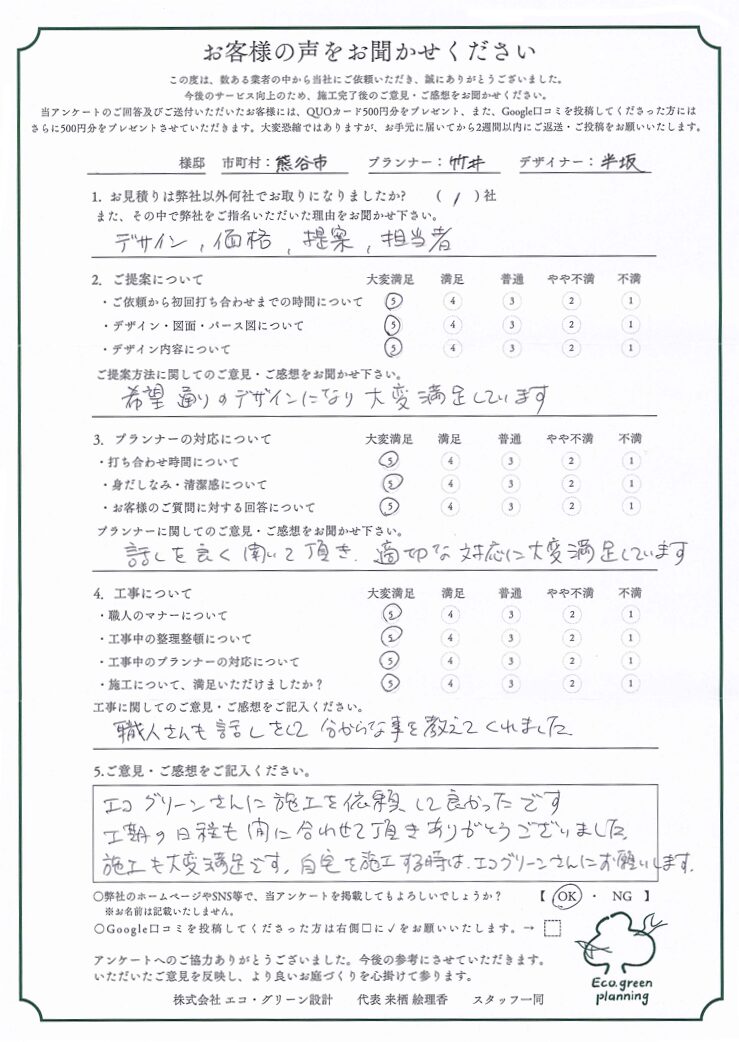 お客様の声をお聞かせください
この度は、数ある業者の中から当社にご依頼いただき、誠にありがとうございました。
今後のサービス向上のため、施工完了後のご意見・ご感想をお聞かせください。
当アンケートのご回答及びご送付いただいたお客様には、QUOカード500円分をプレゼント、また、Google口コミを投稿してくださった方には
さらに500円分をプレゼントさせていただきます。大変恐縮ではありますが、お手元に届いてから2週間以内にご返送・ご投稿をお願いいたします。
様邸 市町村：熊谷市 プランナー：竹井 デザイナー：半坂
1. お見積りは弊社以外何社でお取りになりましたか? ( 1 )社
また、その中で弊社をご指名いただいた理由をお聞かせ下さい。
デザイン, 価格, 提案, 担当者
2. ご提案について 大変満足 満足 普通 やや不満 不満
・ご依頼から初回打ち合わせまでの時間について 5 4 3 2 1
・デザイン・図面・パース図について 5 4 3 2 1
・デザイン内容について 5 4 3 2 1
ご提案方法に関してのご意見・ご感想をお聞かせ下さい。
希望通りのデザインになり大変満足しています
3. プランナーの対応について 大変満足 満足 普通 やや不満 不満
・打ち合わせ時間について 5 4 3 2 1
・身だしなみ・清潔感について 5 4 3 2 1
・お客様のご質問に対する回答について 5 4 3 2 1
プランナーに関してのご意見・ご感想をお聞かせ下さい。
話しを良く聞いて頂き、適切な対応に大変満足しています
4. 工事について 大変満足 満足 普通 やや不満 不満
・職人のマナーについて 5 4 3 2 1
・工事中の整理整頓について 5 4 3 2 1
・工事中のプランナーの対応について 5 4 3 2 1
・施工について、満足いただけましたか？ 5 4 3 2 1
工事に関してのご意見・ご感想をご記入ください。
職人さんも話しをして分からな事を教えてくれました
5.ご意見・ご感想をご記入ください。
エコグリーンさんに施工を依頼して良かったです
工期の日程も間に合わせて頂きありがとうございました。
施工も大変満足です。自宅を施工する時は、エコグリーンさんにお願いします。
○弊社のホームページやSNS等で、当アンケートを掲載してもよろしいでしょうか？ 【 OK ・ NG 】
※お名前は記載いたしません。
○Google口コミを投稿してくださった方は右側□に✓をお願いいたします。→
アンケートへのご協力ありがとうございました。今後の参考にさせていただきます。
いただいたご意見を反映し、より良いお庭づくりを心掛けて参ります。
Eco.green
planning
株式会社 エコ・グリーン設計 代表 来栖 絵理香 スタッフ一同